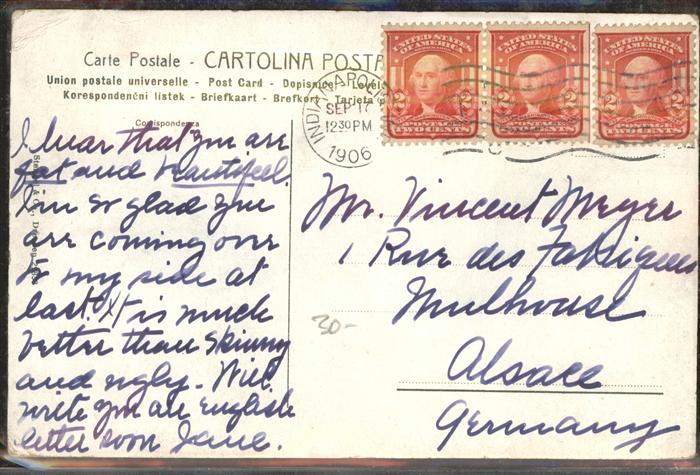 Carte Postale - CARTOLINA POSTA
Union postale universelle - Post Card - Dopisnice - Levelez
Korespondenční listek - Briefkaart - Brefkort - Tarjeta
Correspondenza
I hear that you are
fat and beautiful.
I'm so glad you
are coming over
to my side at
last. It is much
better than skinny
and ugly. Will
write you an english
letter soon Jane.
SEP 17
12 30 PM
1906
UNITED STATES OF AMERICA
2 2
POSTAGE
TWO CENTS
UNITED STATES OF AMERICA
2 2
POSTAGE
TWO CENTS
UNITED STATES OF AMERICA
2 2
POSTAGE
TWO CENTS
Mr. Vincent Meyer
1 Rue des
Mulhouse
Alsace
Germany
30-